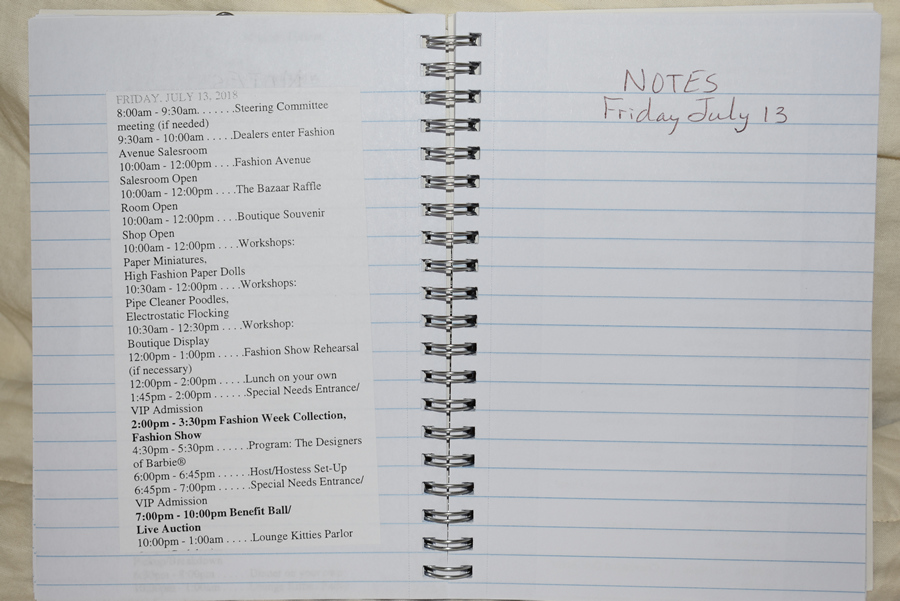 FRIDAY, JULY 13, 2018
8:00am - 9:30am. . . . . . .Steering Committee
meeting (if needed)
9:30am - 10:00am . . . . .Dealers enter Fashion
Avenue Salesroom
10:00am - 12:00pm . . . .Fashion Avenue
Salesroom Open
10:00am - 12:00pm . . . .The Bazaar Raffle
Room Open
10:00am - 12:00pm . . . .Boutique Souvenir
Shop Open
10:00am - 12:00pm . . . .Workshops:
Paper Miniatures,
High Fashion Paper Dolls
10:30am - 12:30pm . . . .Workshops:
Pipe Cleaner Poodles,
Electrostatic Flocking
10:30am - 12:30pm . . . .Workshop:
Boutique Display
12:00pm - 1:00pm . . . . .Fashion Show Rehearsal
(if necessary)
12:00pm - 2:00pm . . . . .Lunch on your own
1:45pm - 2:00pm . . . . . .Special Needs Entrance/
VIP Admission
2:00pm - 3:30pm Fashion Week Collection,
Fashion Show
4:30pm - 5:30pm . . . . . .Program: The Designers
of Barbie®
6:00pm - 6:45pm . . . . . .Host/Hostess Set-Up
6:45pm - 7:00pm . . . . . .Special Needs Entrance/
VIP Admission
7:00pm - 10:00pm Benefit Ball/
Live Auction
10:00pm - 1:00am . . . . .Lounge Kitties Parlor
NOTES
Friday July 13